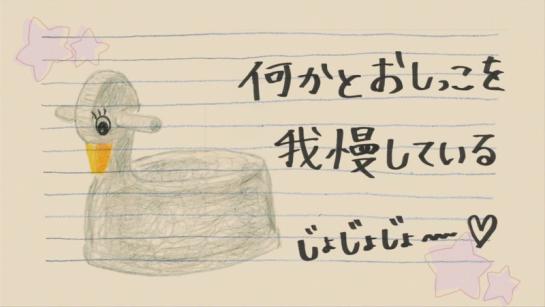 何かとおしっこを
我慢している
じょじょじょ〜♡